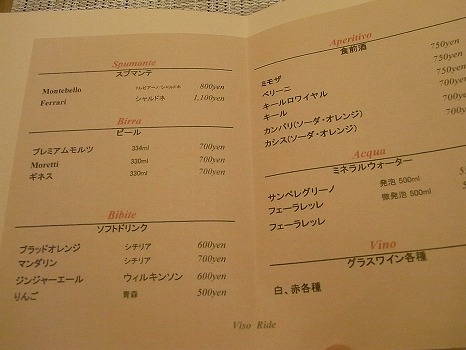 Spumante
スプマンテ
Montebello トレッビアーノ/シャルドネ 800yen
Ferrari シャルドネ 1,100yen
Birra
ビール
プレミアムモルツ 334ml 700yen
Moretti 330ml 700yen
ギネス 330ml 700yen
Bibite
ソフトドリンク
ブラッドオレンジ シチリア 600yen
マンダリン シチリア 700yen
ジンジャーエール ウィルキンソン 600yen
りんご 青森 500yen
Aperitivo
食前酒
ミモザ 750yen
ベリーニ 750yen
キールロワイヤル 750yen
キール 700yen
カンパリ(ソーダ・オレンジ) 700yen
カシス(ソーダ・オレンジ)
Acqua
ミネラルウォーター
サンペレグリーノ 発泡 500ml
フェーラレッレ 微発泡 500ml
フェーラレッレ
Vino
グラスワイン各種
白、赤各種
Viso Ride